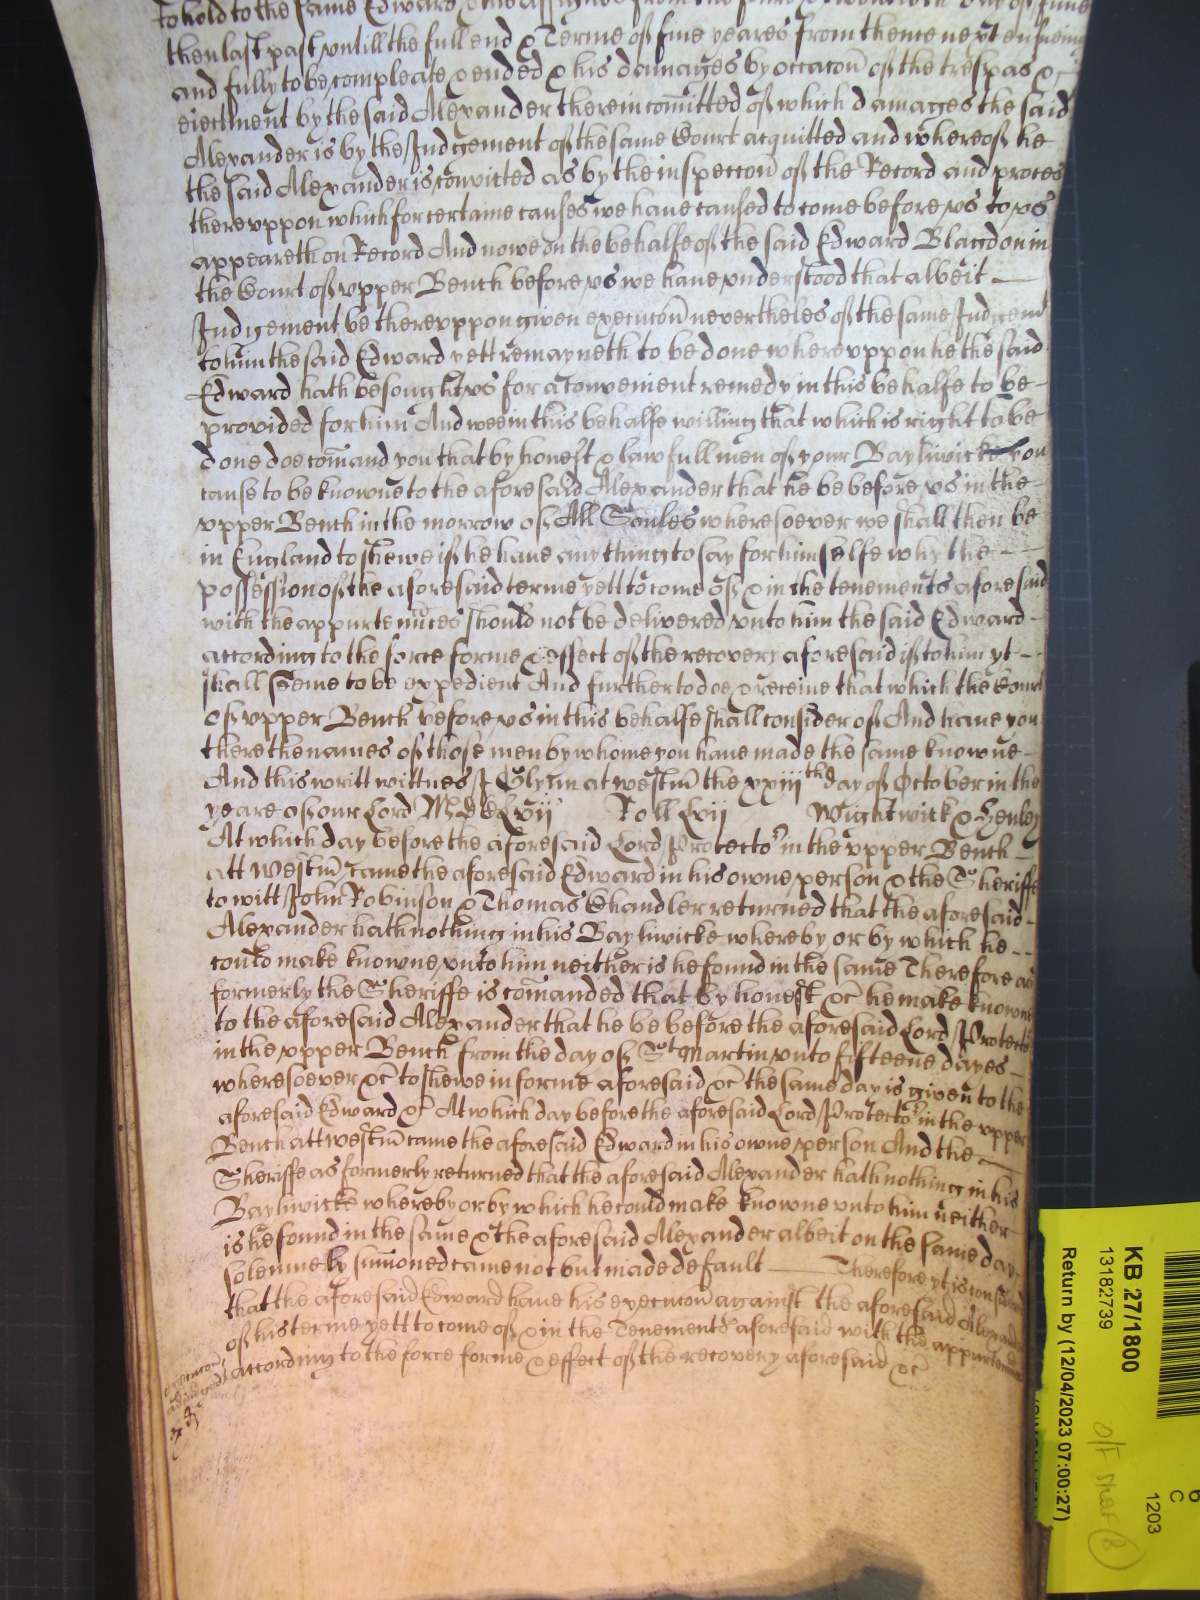 to hold to the same Edward & his assignes from the
then last past untill the full end & Terme of five yeares from thence next ensueing
and fully to be compleate & ended & his damages by occacon of the trespas &
eiectment by the said Alexander therein comitted of which damages the said
Alexander is by the Judgement of the same Court acquitted and whereof he
the said Alexander is convicted as by the inspeccon of the Record and proces
thereuppon which for certaine causes we have caused to come before us to us
appeareth on Record And nowe on the behalfe of the said Edward Blagdon in
the Court of upper Bench before us we have understood that albeit
Judgement be thereuppon given execucon nevertheles of the same Judgem
to him the said Edward yett remayneth to be done whereuppon he the said
Edward hath besought us for a convenient remedy in this behalfe to be
provided for him And wee in this behalfe willing that which is right to be
done doe comand you that by honest & lawfull men of your Bayliwicke you
cause to be knowne to the aforesaid Alexander that he be before us in the
upper Bench in the morrow of All Soules wheresoever we shall then be
in England to shewe if he have any thing to say for himselfe why the
possession of the aforesaid terme yett to come of & in the tenements aforesaid
with the appurtenances should not be delivered unto him the said Edward
according to the force forme & effect of the recovery aforesaid if to him yt
shall seeme to be expedient And further to doe & receive that which the Court
of upper Bench before us in this behalfe shall consider of And have you
there the names of those men by whome you have made the same knowne
And this writt wittnes J Glynn at westm the xxiiith day of October in the
yeare of our Lord MDCLvii Roll Lvii Wightwick & Henley
At which day before the aforesaid Lord Protector in the upper Bench
att westm came the aforesaid Edward in his owne person & the Sheriffe
to witt John Robinson & Thomas Chandler returned that the aforesaid
Alexander hath nothing in his Bayliwicke whereby or by which he
could make knowne unto him neither is he found in the same Therefore as
formerly the Sheriffe is comanded that by honest &c he make knowne
to the aforesaid Alexander that he be before the aforesaid Lord Protector
in the upper Bench from the day of St Martin unto fifteene dayes
wheresoever &c to shewe in forme aforesaid &c the same day is given to the
aforesaid Edward &c At which day before the aforesaid Lord Protector in the upper
Bench att westm came the aforesaid Edward in his owne person And the
Sheriffe as formerly returned that the aforesaid Alexander hath nothing in his
Bayliwicke whereby or by which he could make knowne unto him neither
is he found in the same & the aforesaid Alexander albeit on the same day
solemnely sumoned came not but made default Therefore yt is considered
that the aforesaid Edward have his execucon against the aforesaid Alexander
of his terme yett to come of & in the Tenements aforesaid with the appurtenances
according to the force forme & effect of the recovery aforesaid &c
KB 27/1800
13182739
Return by (12/04/2023 07:00:27)
6
C
1203